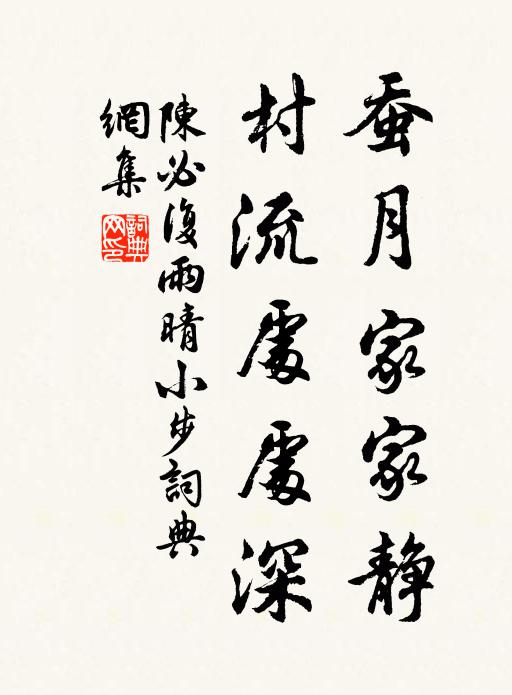 蚕月家家静
村流處處深
陳必復雨晴小步詞典
網集
詞典
网印